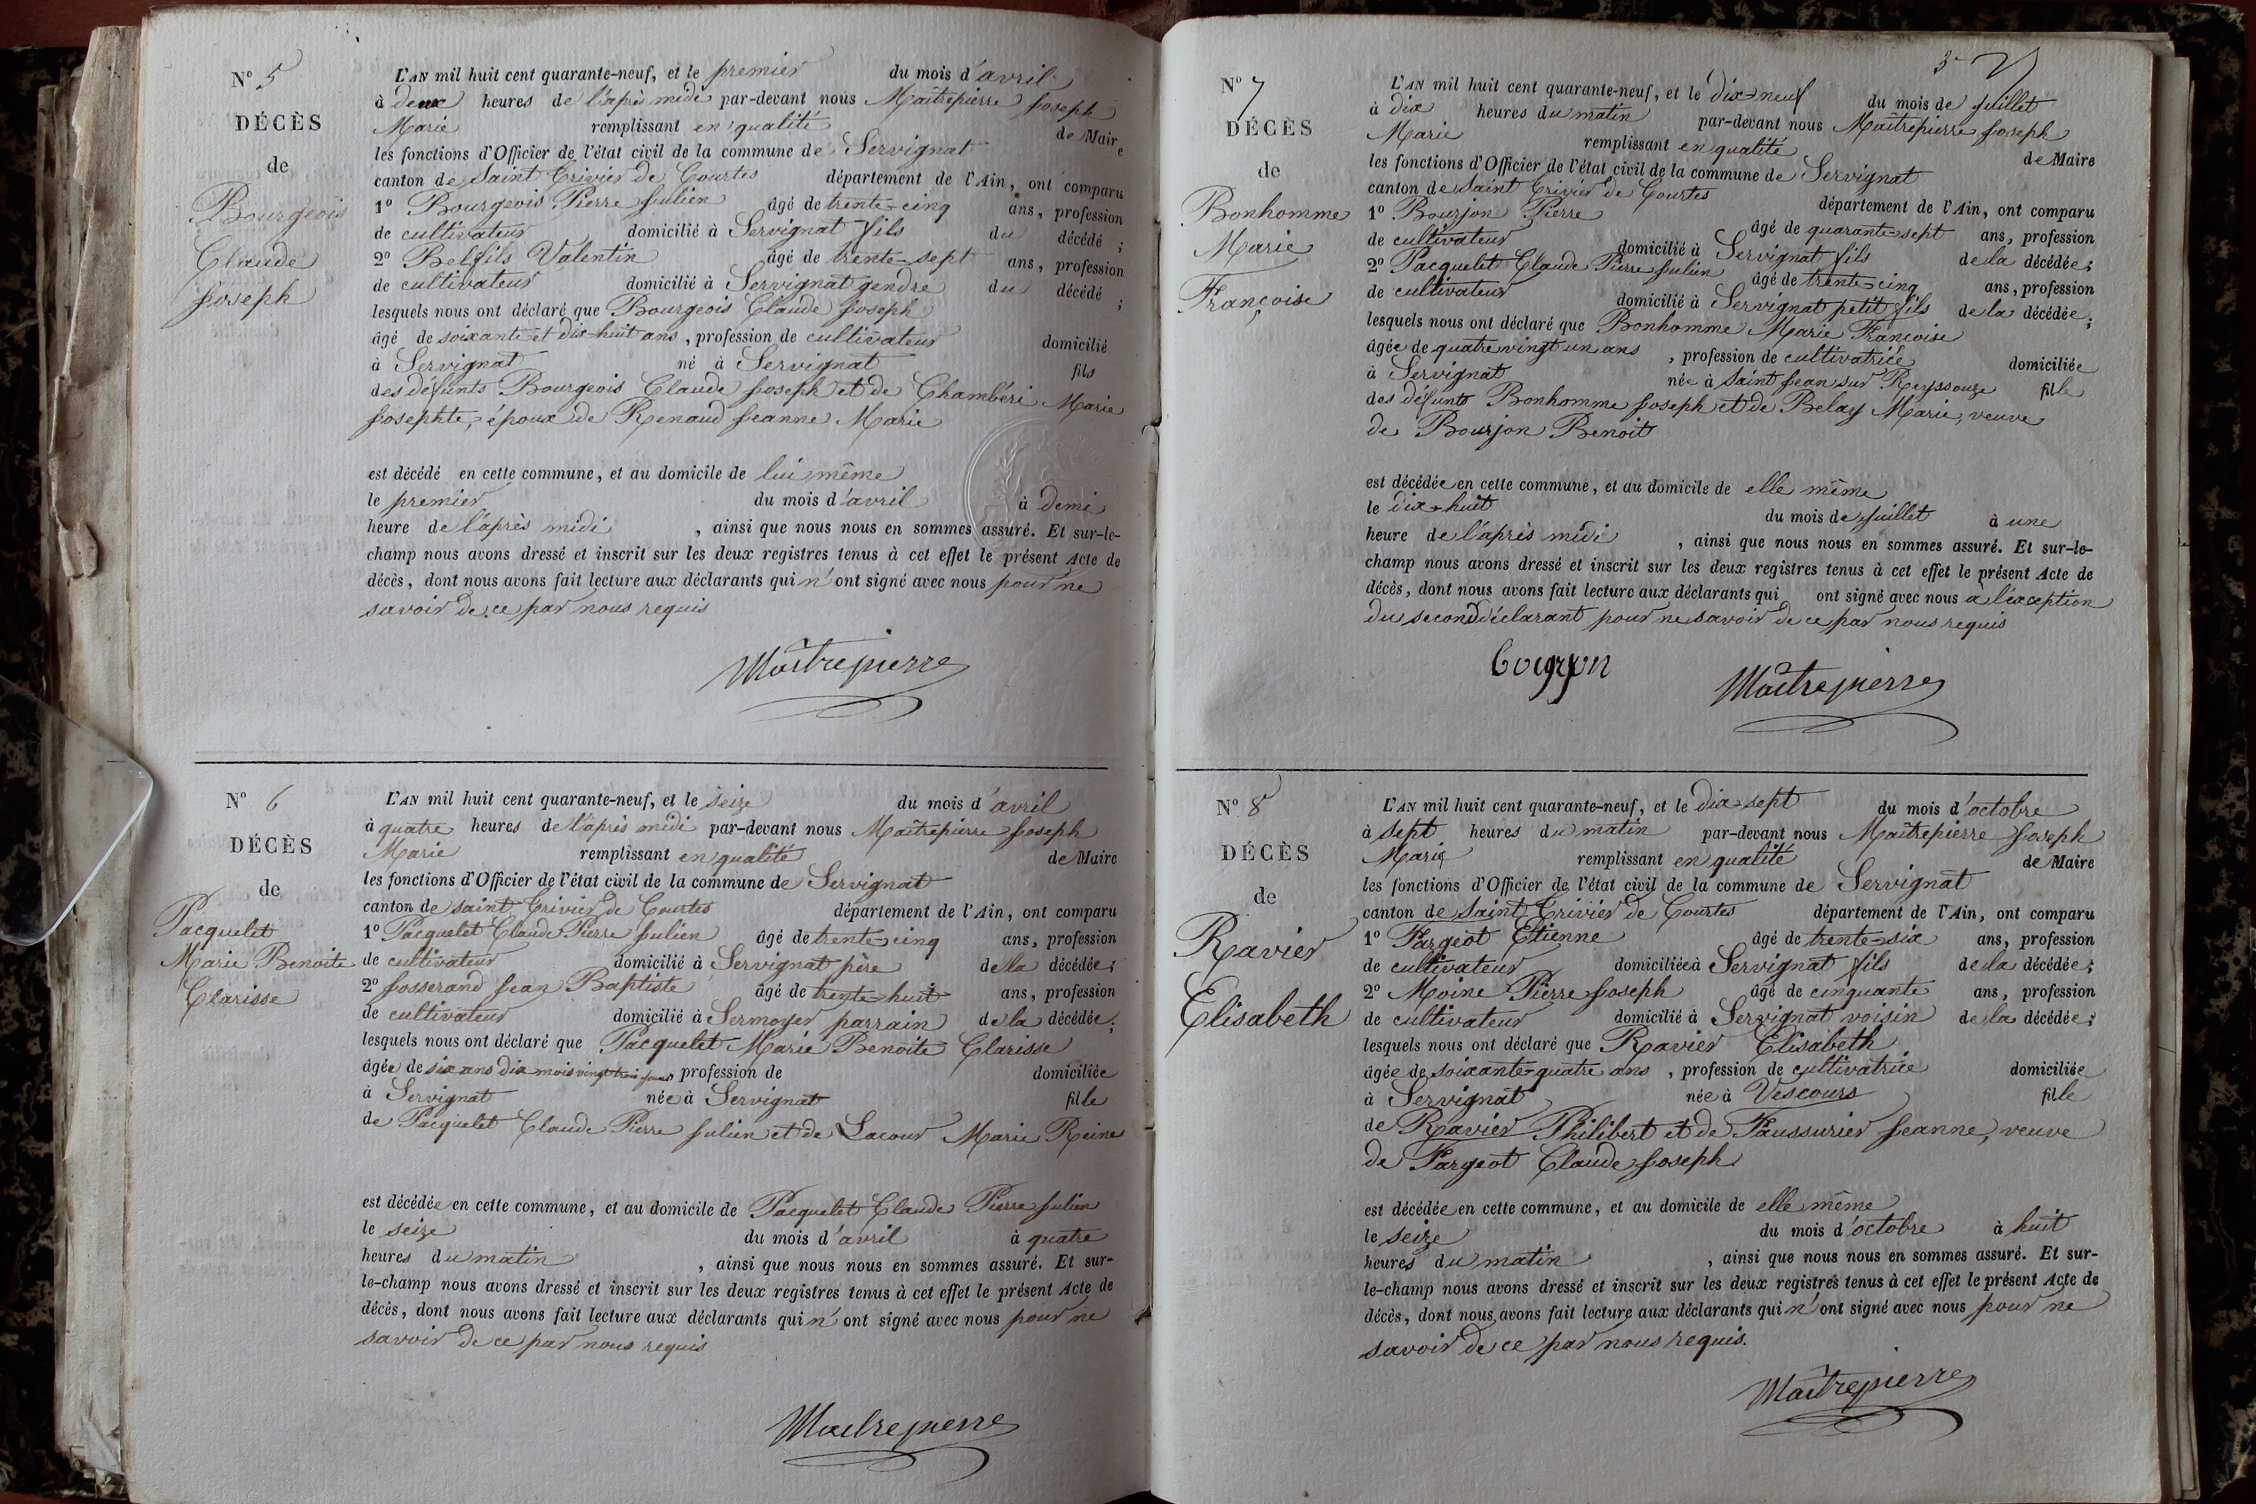 N° 5
DÉCÈS
de
Bourgeois
Claude
Joseph
L'AN mil huit cent quarante-neuf, et le premier du mois d'avril
à deux heures de l'après midi par-devant nous Maîtrepierre Joseph
Marie remplissant en qualité de Maire
les fonctions d'Officier de l'état civil de la commune de Servignat
canton de Saint Trivier de Courtes département de l'Ain, ont comparu
1° Bourgeois Pierre Julien âgé de trente-cinq ans, profession
de cultivateur domicilié à Servignat fils du décédé ;
2° Belfils Valentin âgé de trente-sept ans, profession
de cultivateur domicilié à Servignat gendre du décédé ;
lesquels nous ont déclaré que Bourgeois Claude Joseph
âgé de soixante et dix-huit ans, profession de cultivateur domicilié
à Servignat né à Servignat fils
des défunts Bourgeois Claude Joseph et de Chambéri Marie
Josephte, époux de Renaud Jeanne Marie
est décédé en cette commune, et au domicile de lui même
le premier du mois d'avril à demi
heure de l'après midi, ainsi que nous nous en sommes assuré. Et sur-le-
champ nous avons dressé et inscrit sur les deux registres tenus à cet effet le présent Acte de
décès, dont nous avons fait lecture aux déclarants qui n'ont signé avec nous pour ne
savoir de ce par nous requis
Maîtrepierre
N° 6
DÉCÈS
de
Pacquelet
Marie Benoite
Clarisse
L'AN mil huit cent quarante-neuf, et le seize du mois d'avril
à quatre heures de l'après midi par-devant nous Maîtrepierre Joseph
Marie remplissant en qualité de Maire
les fonctions d'Officier de l'état civil de la commune de Servignat
canton de saint Trivier de Courtes département de l'Ain, ont comparu
1° Pacquelet Claude Pierre Julien âgé de trente-cinq ans, profession
de cultivateur domicilié à Servignat père de la décédée ;
2° Josserand Jean Baptiste âgé de trente-huit ans, profession
de cultivateur domicilié à Sermoyer parrain de la décédée ;
lesquels nous ont déclaré que Pacquelet Marie Benoite Clarisse
âgée de six ans dix mois vingt trois jours profession de domiciliée
à Servignat née à Servignat fille
de Pacquelet Claude Pierre Julien et de Lacour Marie Reine
est décédée en cette commune, et au domicile de Pacquelet Claude Pierre Julien
le seize du mois d'avril à quatre
heures du matin, ainsi que nous nous en sommes assuré. Et sur-
le-champ nous avons dressé et inscrit sur les deux registres tenus à cet effet le présent Acte de
décès, dont nous avons fait lecture aux déclarants qui n'ont signé avec nous pour ne
savoir de ce par nous requis
Maitrepierre
3
N° 7
DÉCÈS
de
Bonhomme
Marie
Françoise
L'AN mil huit cent quarante-neuf, et le dix-neuf du mois de Juillet
à dix heures du matin par-devant nous Maîtrepierre Joseph
Marie remplissant en qualité de Maire
les fonctions d'Officier de l'état civil de la commune de Servignat
canton de Saint Trivier de Courtes département de l'Ain, ont comparu
1° Bourjon Pierre âgé de quarante-sept ans, profession
de cultivateur domicilié à Servignat fils de la décédée ;
2° Pacquelet Claude Pierre Julien âgé de trente-cinq ans, profession
de cultivateur domicilié à Servignat petit fils de la décédée ;
lesquels nous ont déclaré que Bonhomme Marie Françoise
âgée de quatre vingt un ans, profession de cultivatrice domiciliée
à Servignat née à Saint Jean sur Reyssouze fille
des défunts Bonhomme Joseph et de Belay Marie, veuve
de Bourjon Benoit
est décédée en cette commune, et au domicile de elle même
le dix-huit du mois de Juillet à une
heure de l'après midi, ainsi que nous nous en sommes assuré. Et sur-le-
champ nous avons dressé et inscrit sur les deux registres tenus à cet effet le présent Acte de
décès, dont nous avons fait lecture aux déclarants qui ont signé avec nous à l'exception
du second déclarant pour ne savoir de ce par nous requis
Maîtrepierre
N° 8
DÉCÈS
de
Ravier
Elisabeth
L'AN mil huit cent quarante-neuf, et le dix-sept du mois d'octobre
à sept heures du matin par-devant nous Maîtrepierre Joseph
Marie remplissant en qualité de Maire
les fonctions d'Officier de l'état civil de la commune de Servignat
canton de Saint Trivier de Courtes département de l'Ain, ont comparu
1° Fargeot Etienne âgé de trente-six ans, profession
de cultivateur domiciliée à Servignat fils de la décédée ;
2° Moine Pierre Joseph âgé de cinquante ans, profession
de cultivateur domicilié à Servignat voisin de la décédée ;
lesquels nous ont déclaré que Ravier Elisabeth
âgée de soixante-quatre ans, profession de cultivatrice domiciliée
à Servignat née à Vescours fille
de Ravier Philibert et de Faussurier Jeanne, veuve
de Fargeot Claude Joseph
est décédée en cette commune, et au domicile de elle même
le seize du mois d'octobre à huit
heures du matin, ainsi que nous nous en sommes assuré. Et sur-
le-champ nous avons dressé et inscrit sur les deux registres tenus à cet effet le présent Acte de
décès, dont nous avons fait lecture aux déclarants qui n'ont signé avec nous pour ne
savoir de ce par nous requis.
Maîtrepierre